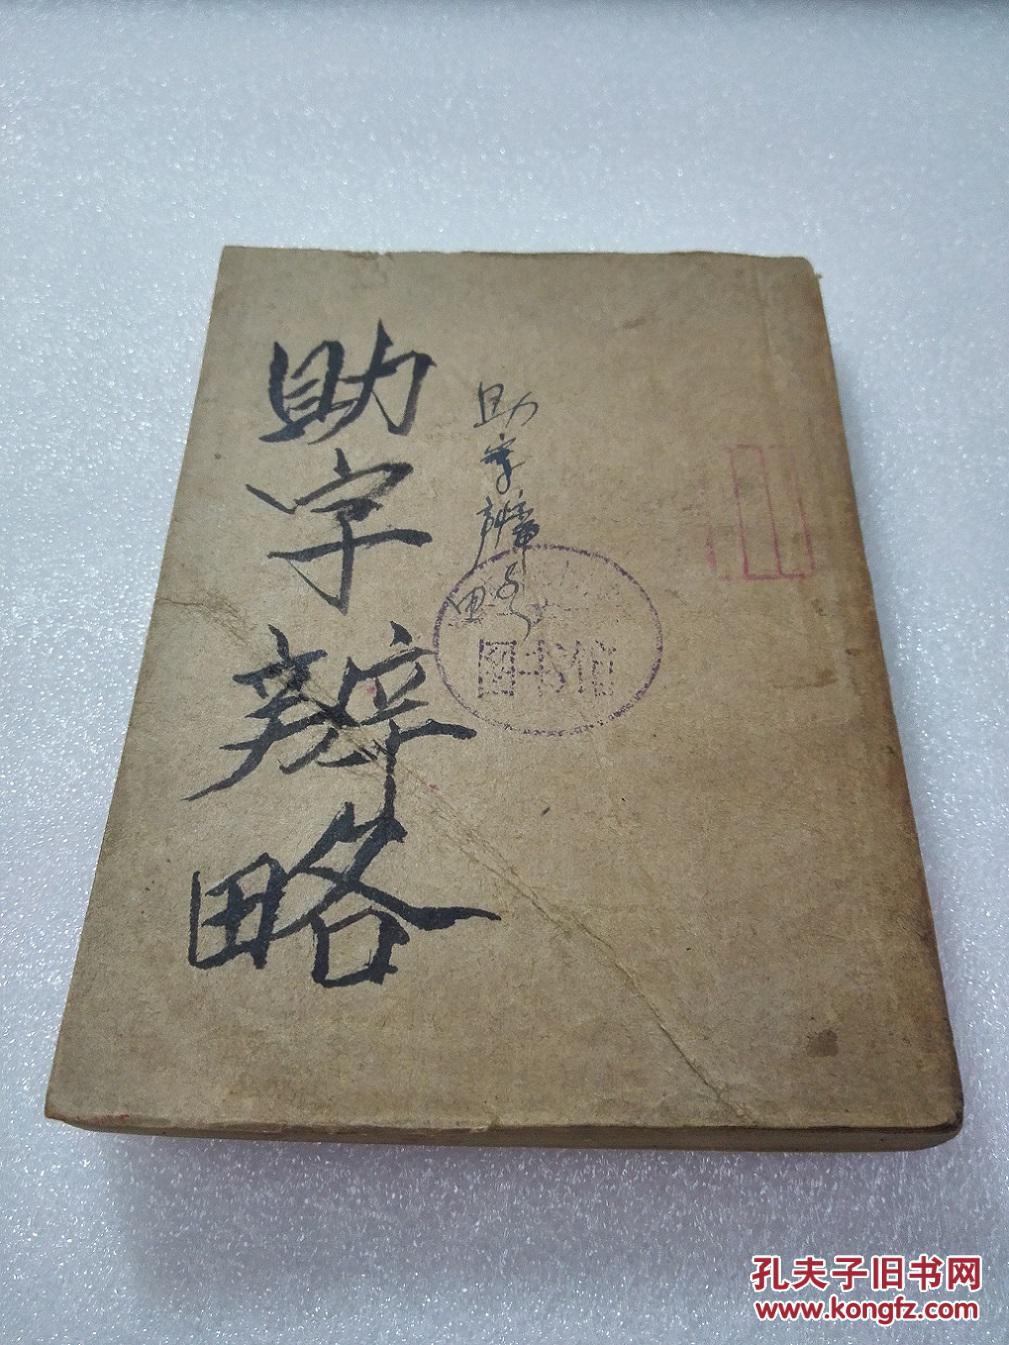 助字辨略
助字辨略
图书馆
孔夫子旧书网
www.kongfz.com